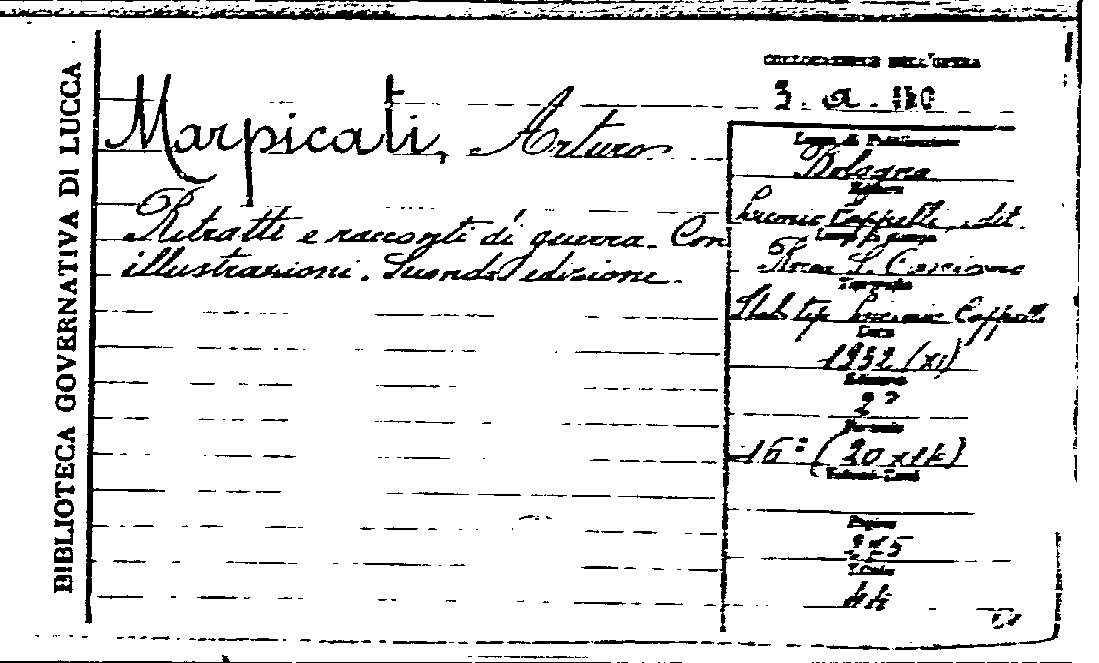 BIBLIOTECA GOVERNATIVA DI LUCCA
COLLOCAZIONE DELL'OPERA
3. a.
Marpicati, Arturo
Ritratti e racconti di guerra. Con
illustrazioni. Seconda edizione.
Luogo di Pubblicazione
Bologna
Editore
Licinio Cappelli, edit.
Luogo di stampa
Rocca S. Casciano
Tipografia
Stab. tip. Licinio Cappelli
Data
1932 (XI)
Edizione
2ª
Formato
16° (20x14)
Pagine